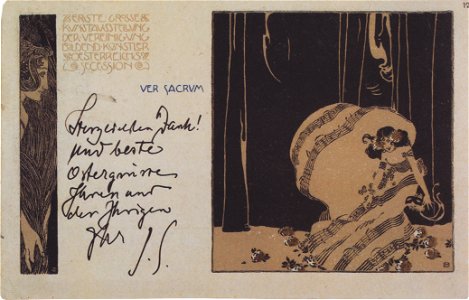 ERSTE GROSSE
KUNSTAUSSTELLUNG
DER VEREINIGUNG
BILDEND·KÜNSTLER
OESTERREICHS
SECESSION
VER SACRVM
Herzlichen Dank!
und beste
Ostergrüsse
Ihnen und
den Ihrigen
Ihr J. S.